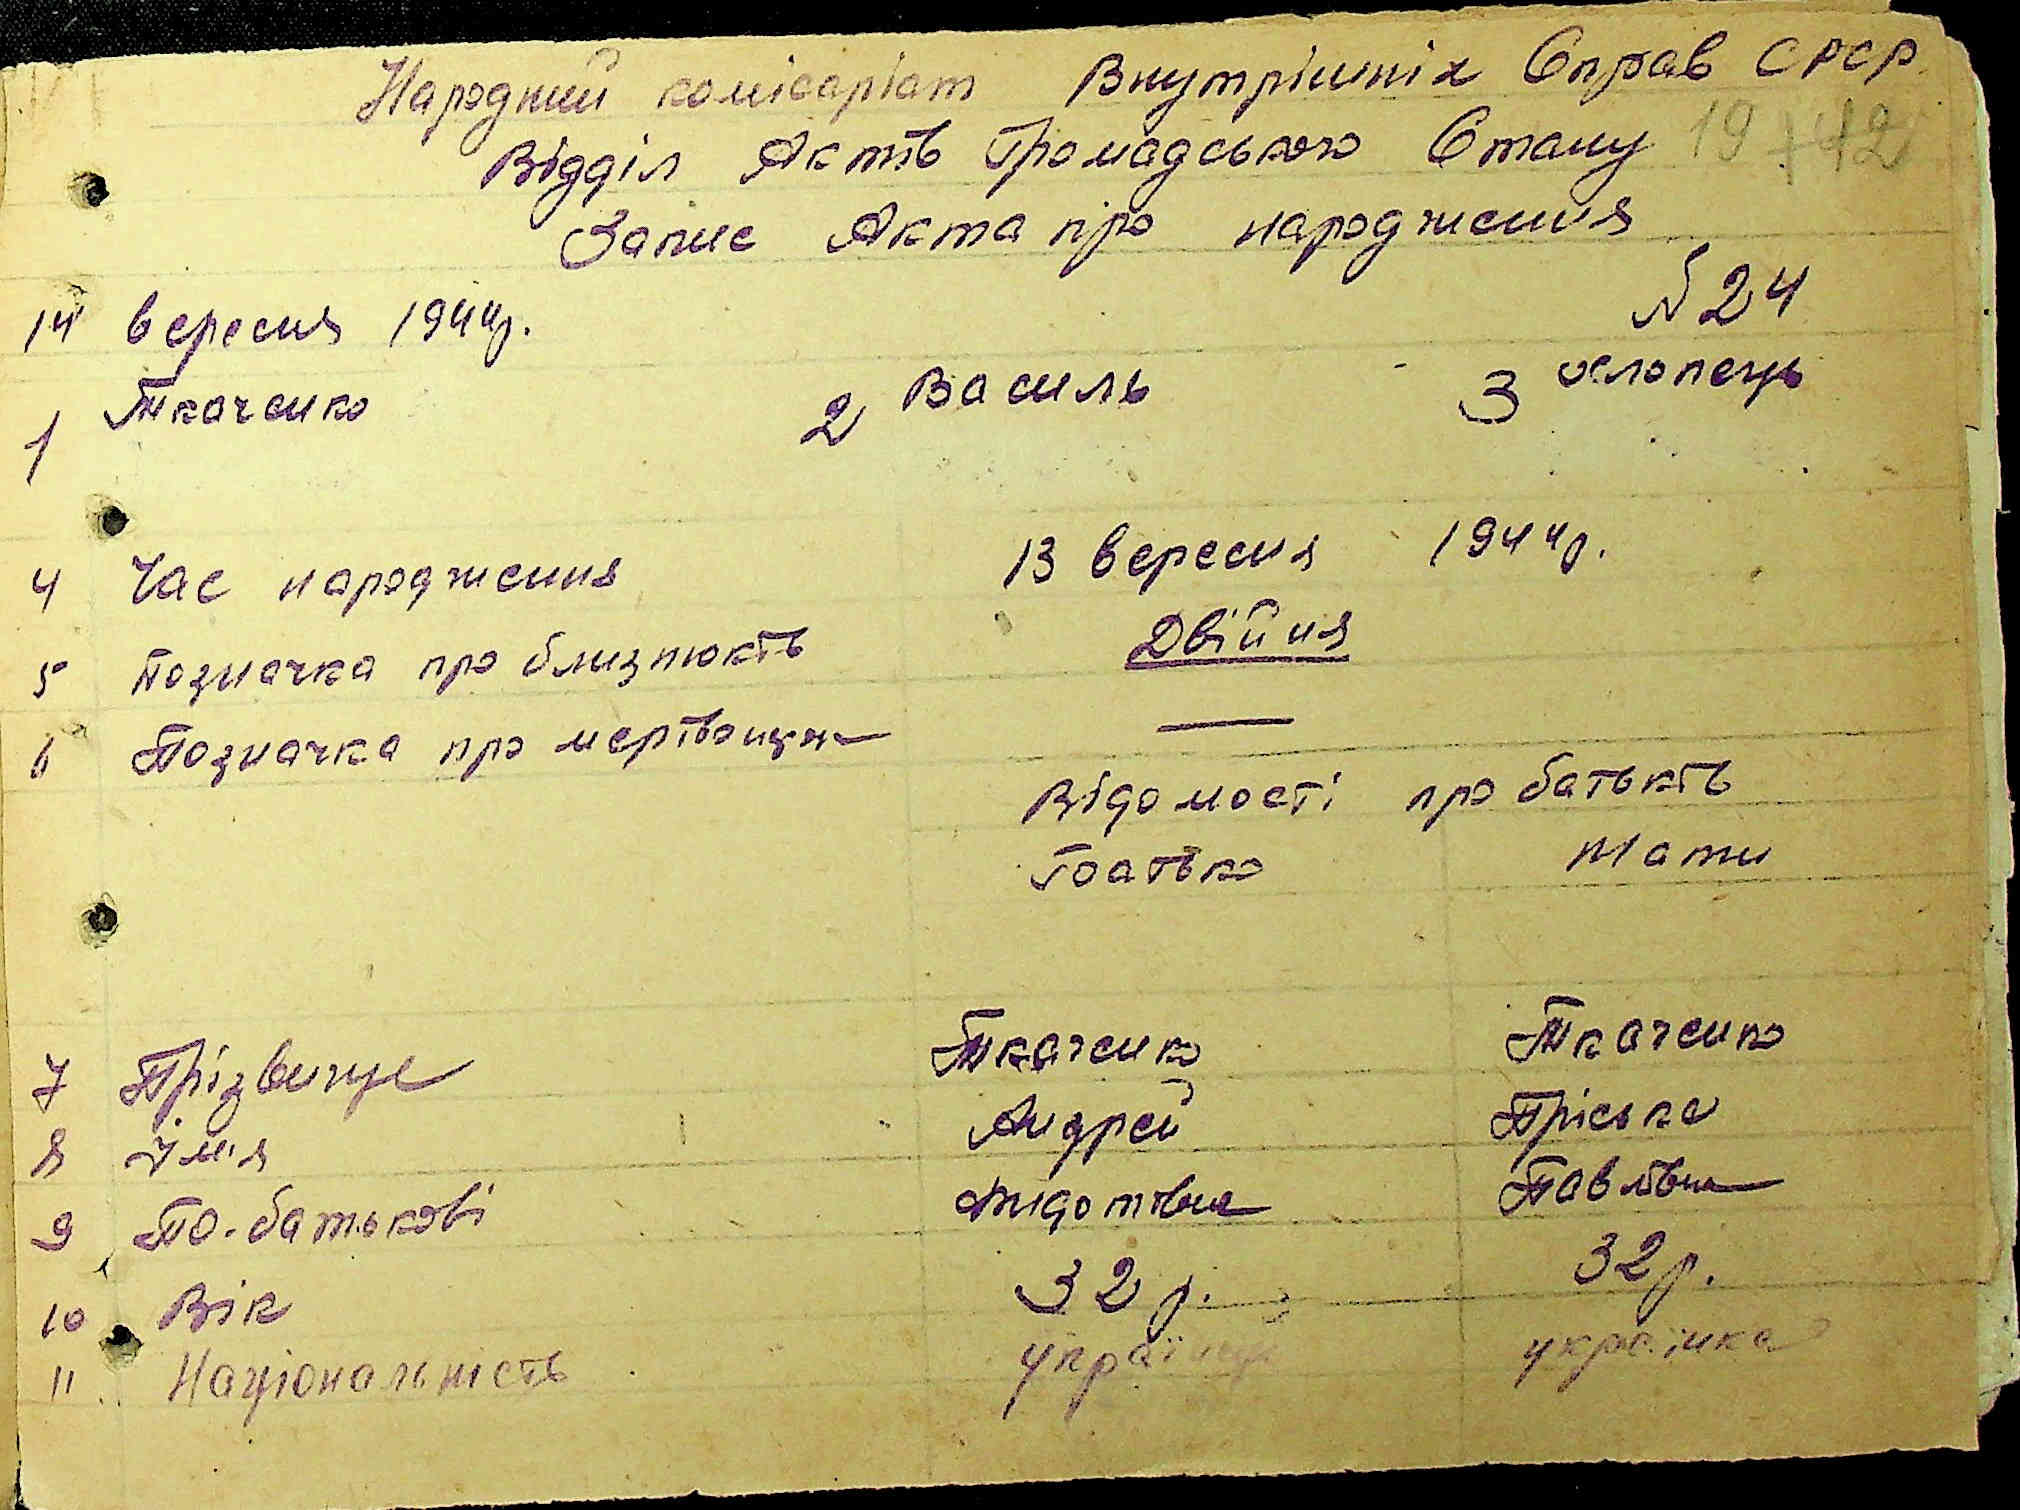 Народний комісаріат Внутрішніх Справ СРСР
Відділ Актів Громадського Стану 19 42
Запис Акта про народження
14 вересня 1944р. № 24
1 Ткаченко 2 Василь 3 хлопець
4 Час народження 13 вересня 1944р.
5 Позначка про близнюків Двійня
6 Позначка про —
Відомості про батьків
Батько Мати
7 Прізвище Ткаченко Ткаченко
8 Ім'я Андрей Пріська
9 По-батькові Павлівна
10 Вік 32 р. 32 р.
11 Національність українець українка